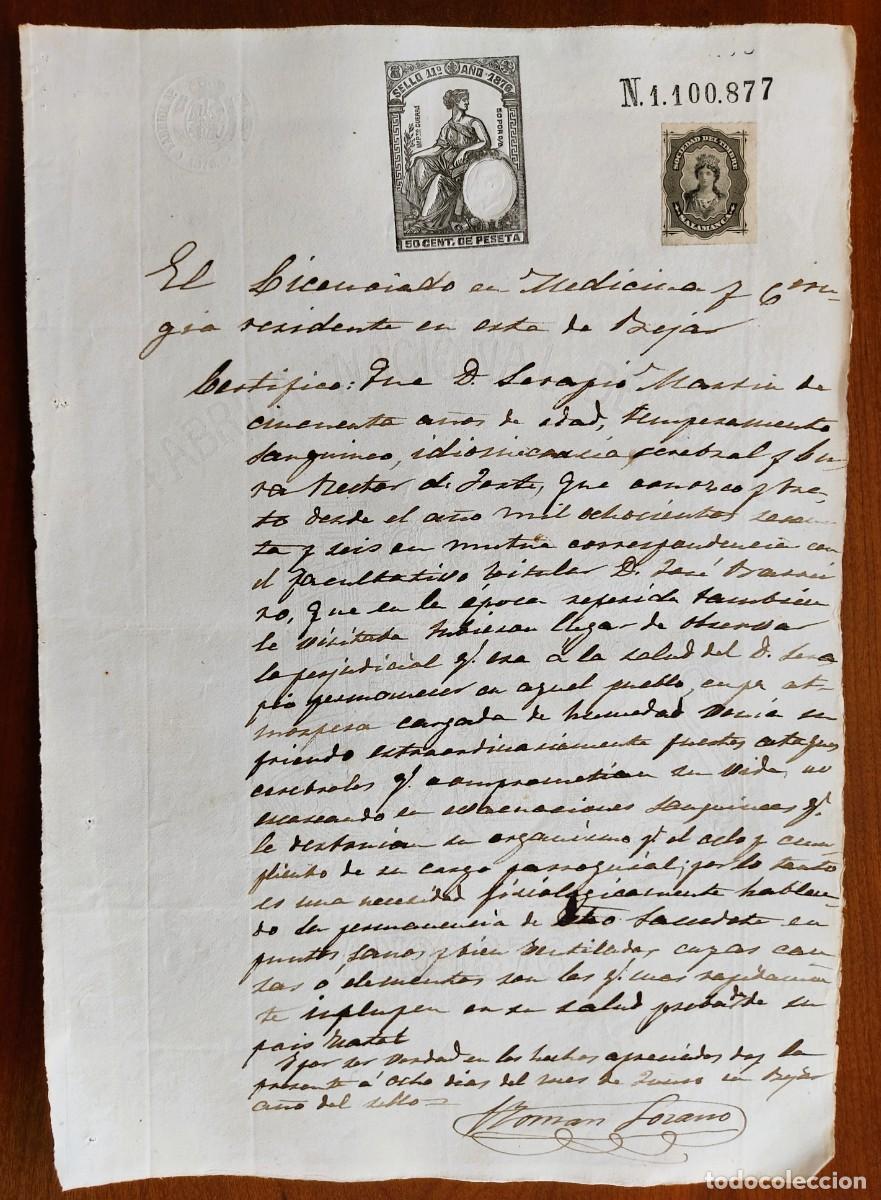 SELLO 11º AÑO 1876
IMPTO GUERRA
50 POR 0/0
50 CENT. DE PESETA
N.1.100.877
SOCIEDAD DEL TIMBRE
SALAMANCA
FABRICA NACIONAL DEL
El Licenciado en Medicina y Ciru-
gia residente en esta de Bejar
Certifico: Que D. Serapio Martin de
cincuenta años de edad, temperamento
sanguineo, idiosincracia cerebral y Cu-
ra Rector de que conozco y tra-
to desde el año mil ochocientos sesen
ta y seis en mutua correspondencia con
el facultativo titular D. José Barrei
ro, que en la época referida tambien
le visitaba tubieron lugar de observar
lo perjudicial q. era á la salud del D. Sera
pio permanecer en aquel pueblo, cuya at-
mosfera cargada de humedad venia su
friendo extraordinariamente fuertes ataques
cerebrales q. comprometian su vida, no
escaseando en evacuaciones sanguineas q.
le destonian su organismo y el celo y cum
plimto de su cargo parroquial; por lo tanto
es una necesidad fisiologicamente hablan
do la permanencia de Sacerdote en
puntos sanos y bien ventilados cuyas cau
sas o elementos son las q. mas rapidamen
te influyen en su salud de su
pais natal
Y por ser verdad en los hechos apreciados doy la
presente á ocho dias del mes de Junio en Bejar
año del sello=
Roman Lozano
todocoleccion